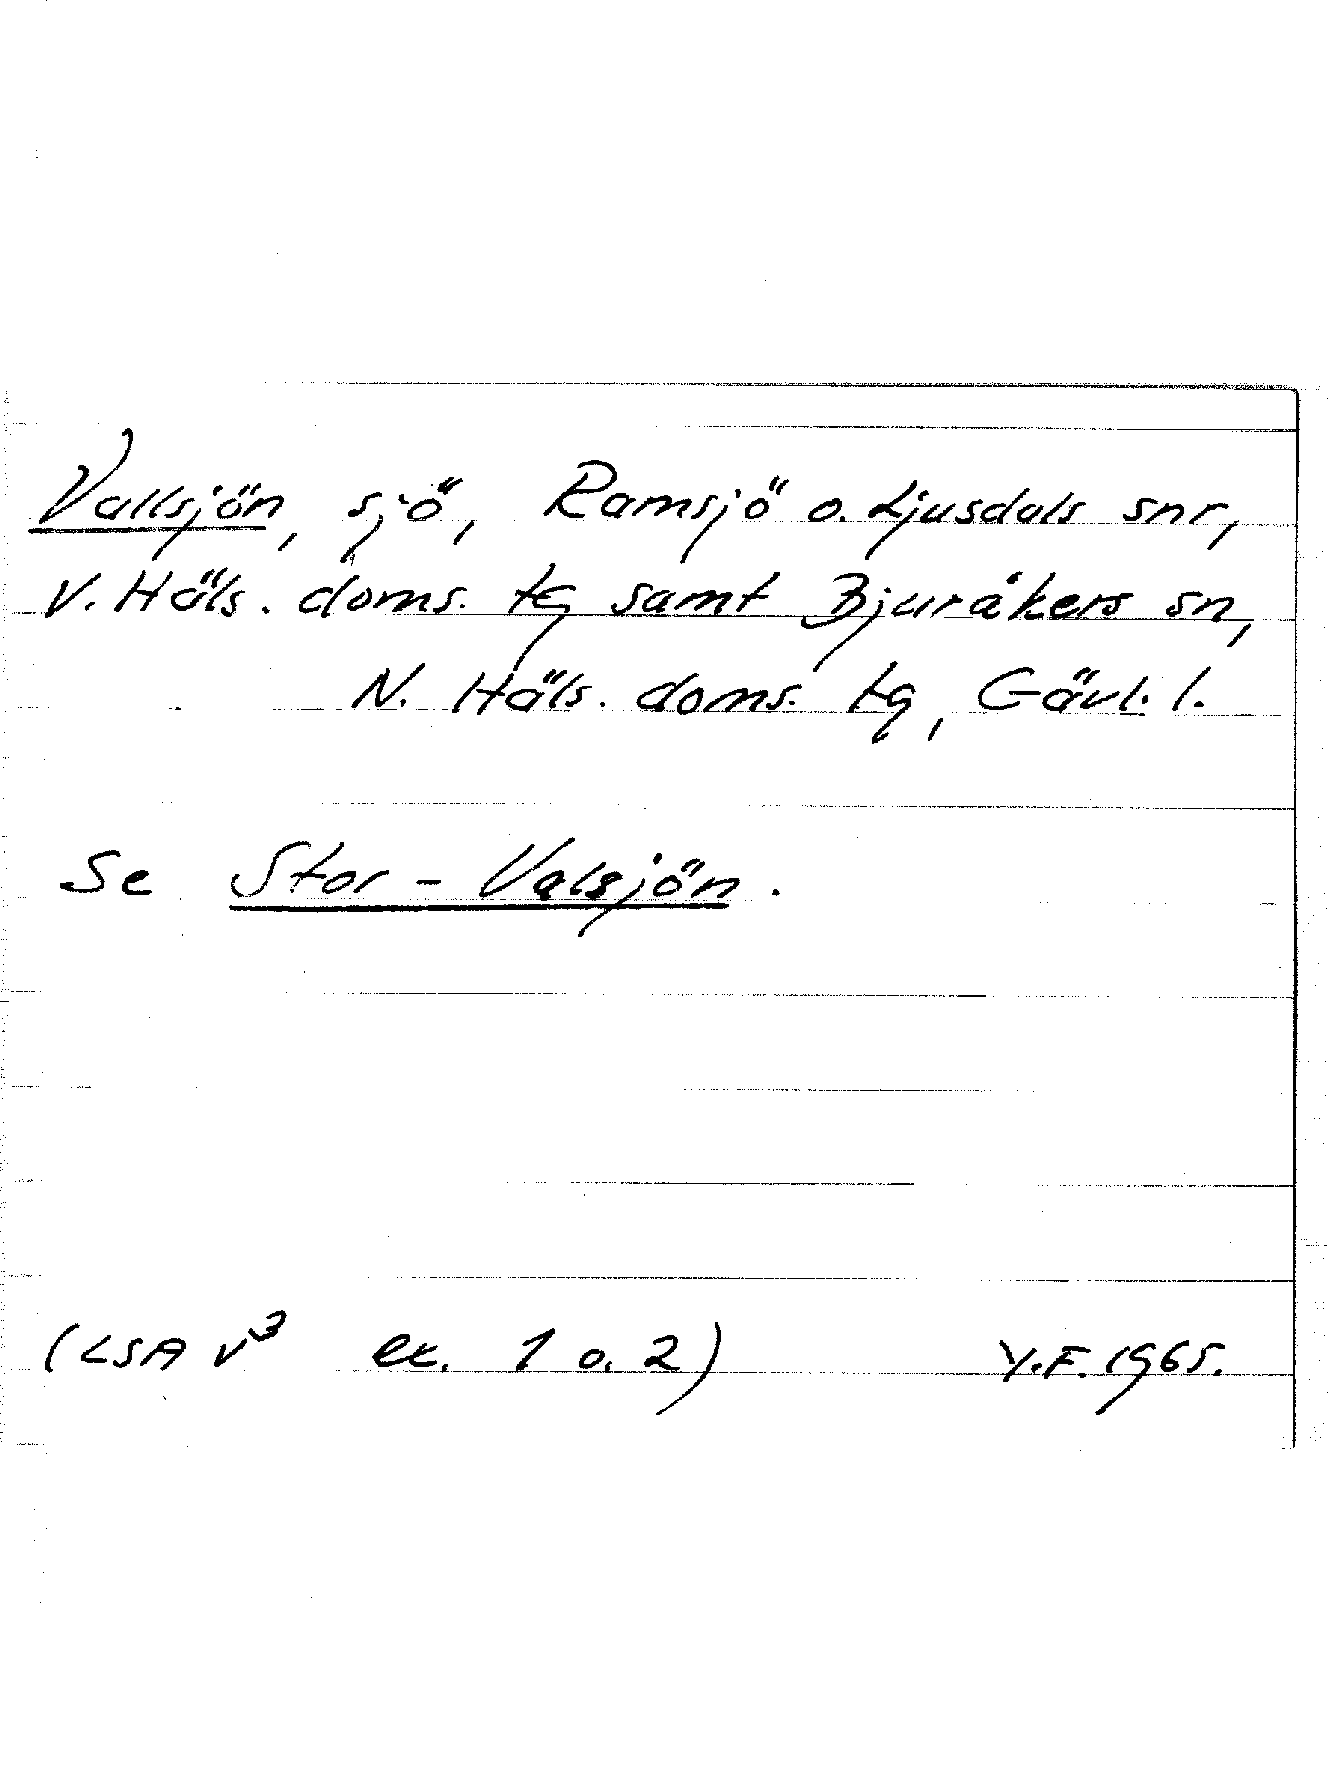 Vallsjön, sjö, Ramsjö o. Ljusdals snr,
V. Häls. doms. tg samt Bjuråkers sn,
N. Häls. doms. tg, Gävl. l.
Se Stor-Valsjön.
(LSA V³ ex. 1 o. 2) Y.F. 1965.